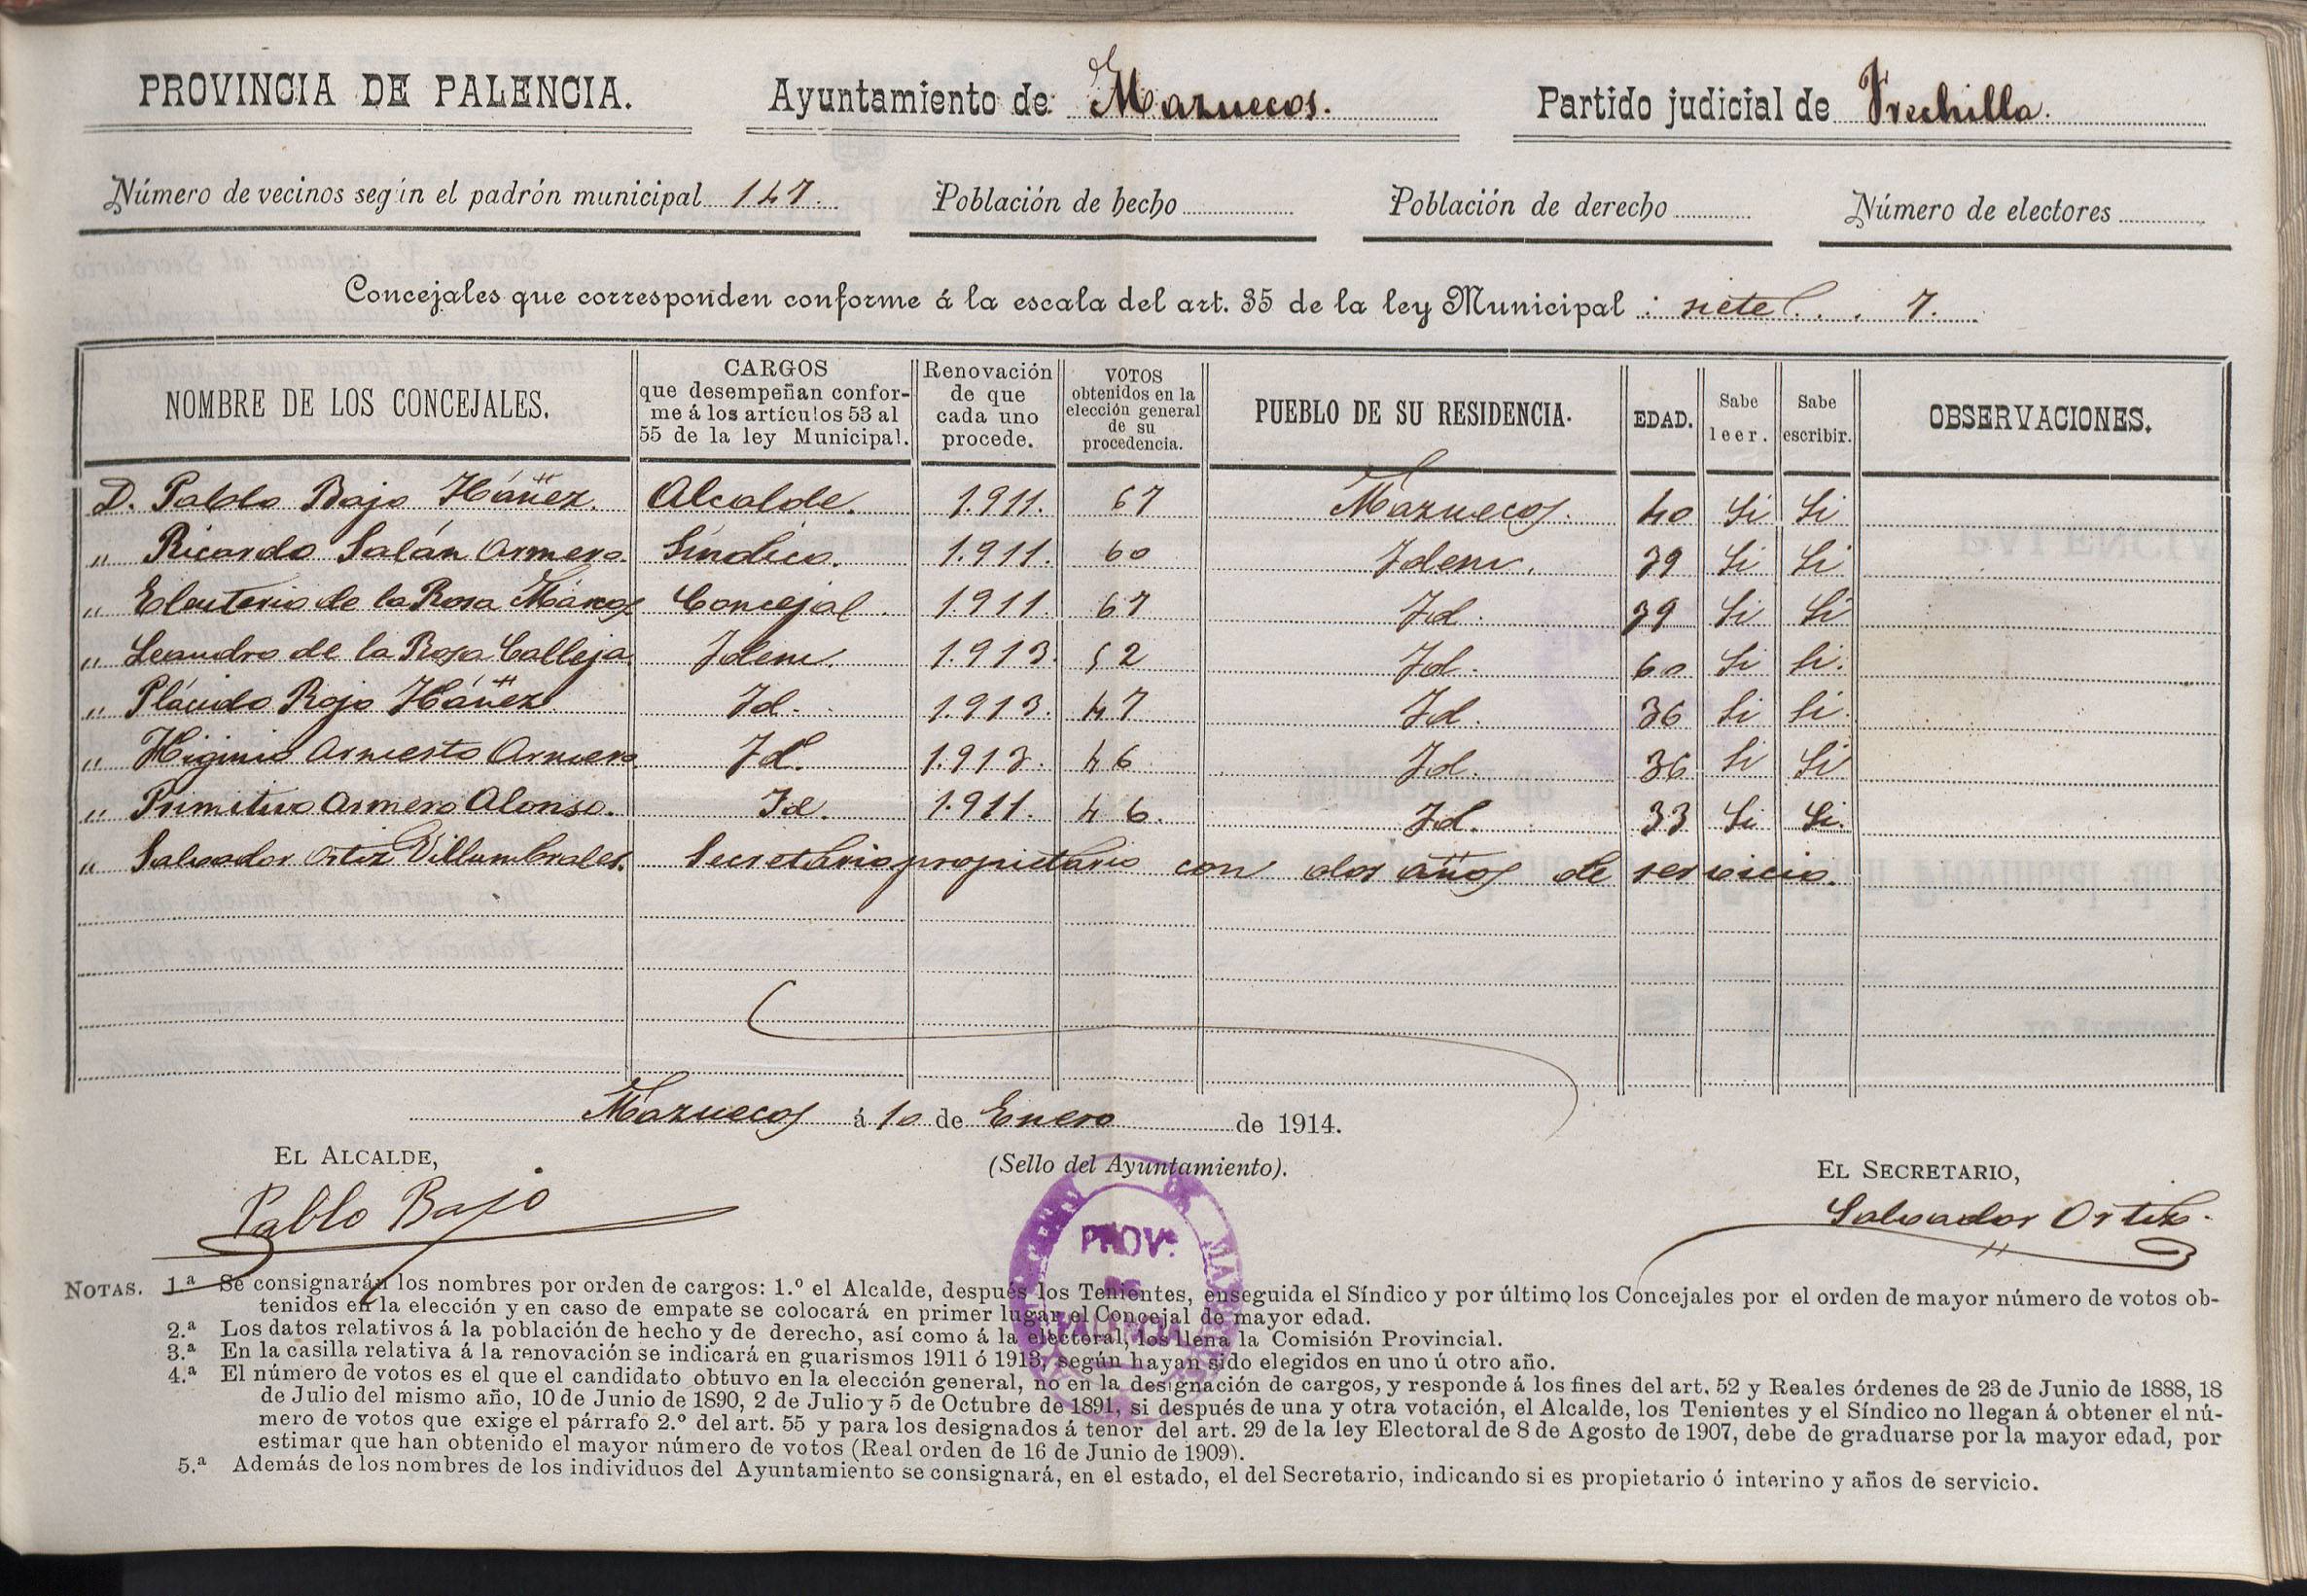 PROVINCIA DE PALENCIA. Ayuntamiento de Mazuecos. Partido judicial de Frechilla.
Número de vecinos según el padrón municipal 147. Población de hecho Población de derecho Número de electores
Concejales que corresponden conforme á la escala del art. 35 de la ley Municipal : siete 7.
NOMBRE DE LOS CONCEJALES. CARGOS que desempeñan conforme á los artículos 53 al 55 de la ley Municipal. Renovación de que cada uno procede. VOTOS obtenidos en la elección general de su procedencia. PUEBLO DE SU RESIDENCIA. EDAD. Sabe leer. Sabe escribir. OBSERVACIONES.
D. Pablo Bajo Ibáñez. Alcalde. 1.911. 67 Mazuecos. 40 Si Si
" Ricardo Salán Armero. Síndico. 1.911. 60 Idem. 39 Si Si
" Eleuterio de la Rosa Márcos Concejal. 1.911. 67 Id. 39 Si Si
" Leandro de la Rosa Calleja. Idem. 1.913. 52 Id. 60 Si Si.
" Plácido Rojo Ibáñez Id. 1.913. 47 Id. 36 Si Si.
" Higinio Armesto Armero. Id. 1.913. 46 Id. 36 Si Si
" Primitivo Armero Alonso. Id. 1.911. 46. Id. 33 Si Si.
" Salvador Ortiz Villumbrales. Secretario propietario con dos años de servicio.
Mazuecos á 10 de Enero de 1914.
EL ALCALDE, (Sello del Ayuntamiento). EL SECRETARIO,
Pablo Bajo Salvador Ortiz.
PROV.ª
DE
PALENCIA
NOTAS. 1.ª Se consignarán los nombres por orden de cargos: 1.º el Alcalde, después los Tenientes, enseguida el Síndico y por último los Concejales por el orden de mayor número de votos ob-
tenidos en la elección y en caso de empate se colocará en primer lugar el Concejal de mayor edad.
2.ª Los datos relativos á la población de hecho y de derecho, así como á la electoral, los llena la Comisión Provincial.
3.ª En la casilla relativa á la renovación se indicará en guarismos 1911 ó 1913, según hayan sido elegidos en uno ú otro año.
4.ª El número de votos es el que el candidato obtuvo en la elección general, no en la designación de cargos, y responde á los fines del art. 52 y Reales órdenes de 23 de Junio de 1888, 18
de Julio del mismo año, 10 de Junio de 1890, 2 de Julio y 5 de Octubre de 1891, si después de una y otra votación, el Alcalde, los Tenientes y el Síndico no llegan á obtener el nú-
mero de votos que exige el párrafo 2.º del art. 55 y para los designados á tenor del art. 29 de la ley Electoral de 8 de Agosto de 1907, debe de graduarse por la mayor edad, por
estimar que han obtenido el mayor número de votos (Real orden de 16 de Junio de 1909).
5.ª Además de los nombres de los individuos del Ayuntamiento se consignará, en el estado, el del Secretario, indicando si es propietario ó interino y años de servicio.